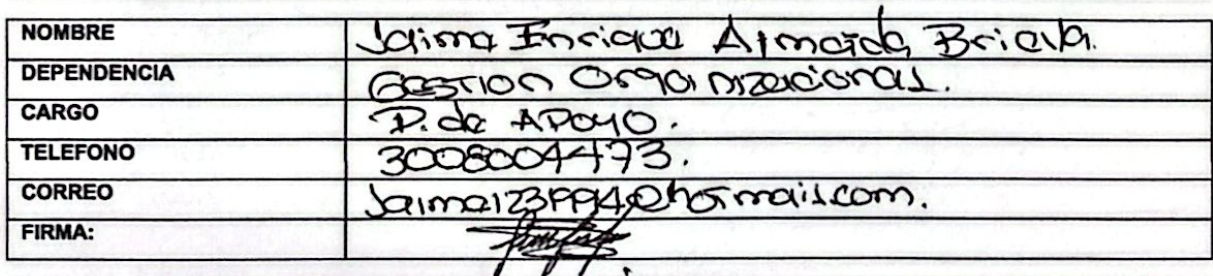 NOMBRE Jaime Enrique Almeida Brieva.
DEPENDENCIA Gestion Organizacional.
CARGO P. de APOYO.
TELEFONO 3008004473.
CORREO @hotmail.com.
FIRMA: